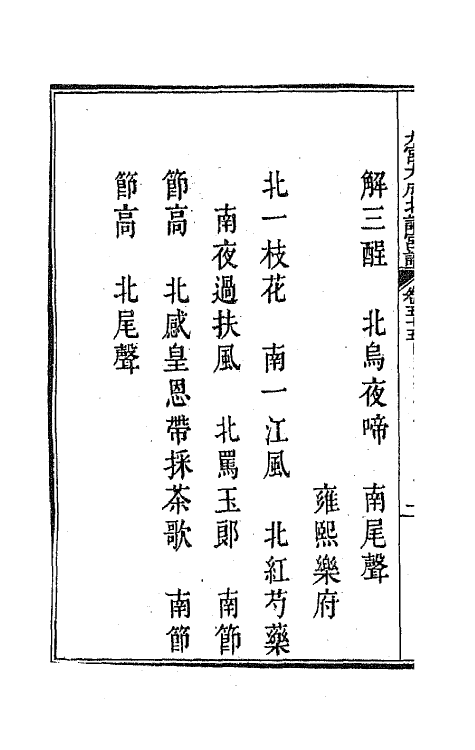 解三酲　北烏夜啼　南尾聲
雍熙樂府
北一枝花　南一江風　北紅芍藥
南夜過扶風　北罵玉郎　南節
節高　北感皇恩帶採茶歌　南節
節高　北尾聲
卷五十五
二